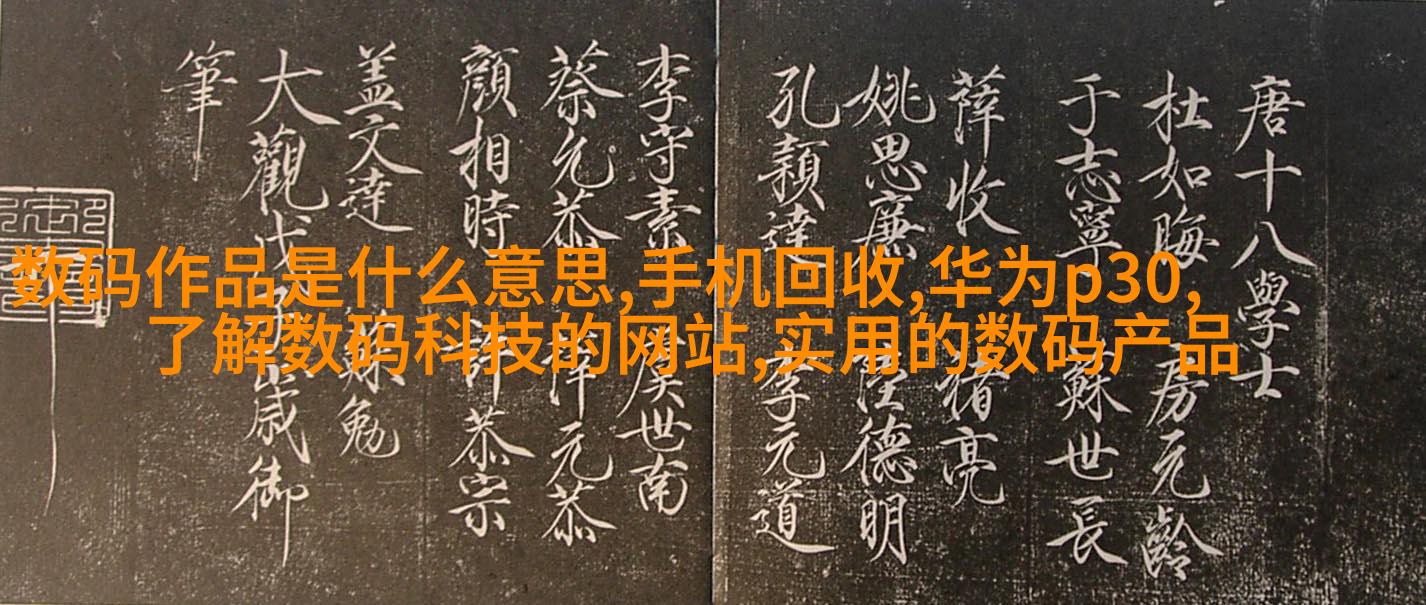 唐十八學士
杜如晦 房元齡
于志寧 蘇世長
薛收 褚亮
姚思廉 陸德明
孔穎達 李元道
李守素 虞世南
蔡允恭 薛元恭
顏相時 許恭宗
盖文達 蘇勉
大觀戊子歲御
筆
数码作品是什么意思,手机回收,华为p30,
了解数码科技的网站,实用的数码产品